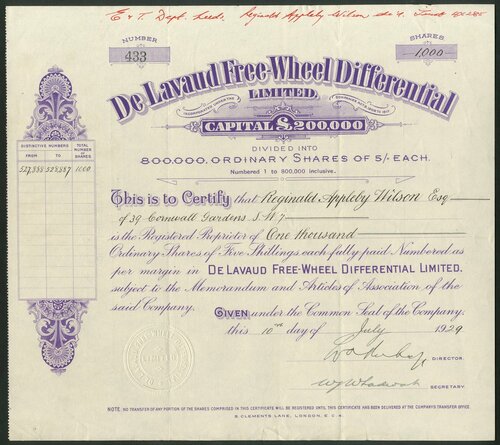 E & T. Dept. Leeds. Reginald Appleby Wilson
NUMBER
433
SHARES
-1,000-
De Lavaud Free-Wheel Differential
LIMITED.
INCORPORATED UNDER THE COMPANIES ACTS, 1908 TO 1917
CAPITAL £200,000
DIVIDED INTO
800,000. ORDINARY SHARES OF 5/- EACH.
Numbered 1 to 800,000 inclusive.
DISTINCTIVE NUMBERS TOTAL NUMBER OF SHARES
FROM TO
527,888 528,887 1000
This is to Certify that Reginald Appleby Wilson Esq
of 39 Cornwall Gardens S.W.7
is the Registered Proprietor of One thousand
Ordinary Shares of Five Shillings each fully paid Numbered as
per margin in DE LAVAUD FREE-WHEEL DIFFERENTIAL LIMITED.
subject to the Memorandum and Articles of Association of the
said Company.
GIVEN under the Common Seal of the Company.
this 10th day of July 1929
DIRECTOR.
SECRETARY.
NOTE. NO TRANSFER OF ANY PORTION OF THE SHARES COMPRISED IN THIS CERTIFICATE WILL BE REGISTERED UNTIL THIS CERTIFICATE HAS BEEN DELIVERED AT THE COMPANY'S TRANSFER OFFICE
5. CLEMENTS LANE, LONDON, E.C.4.